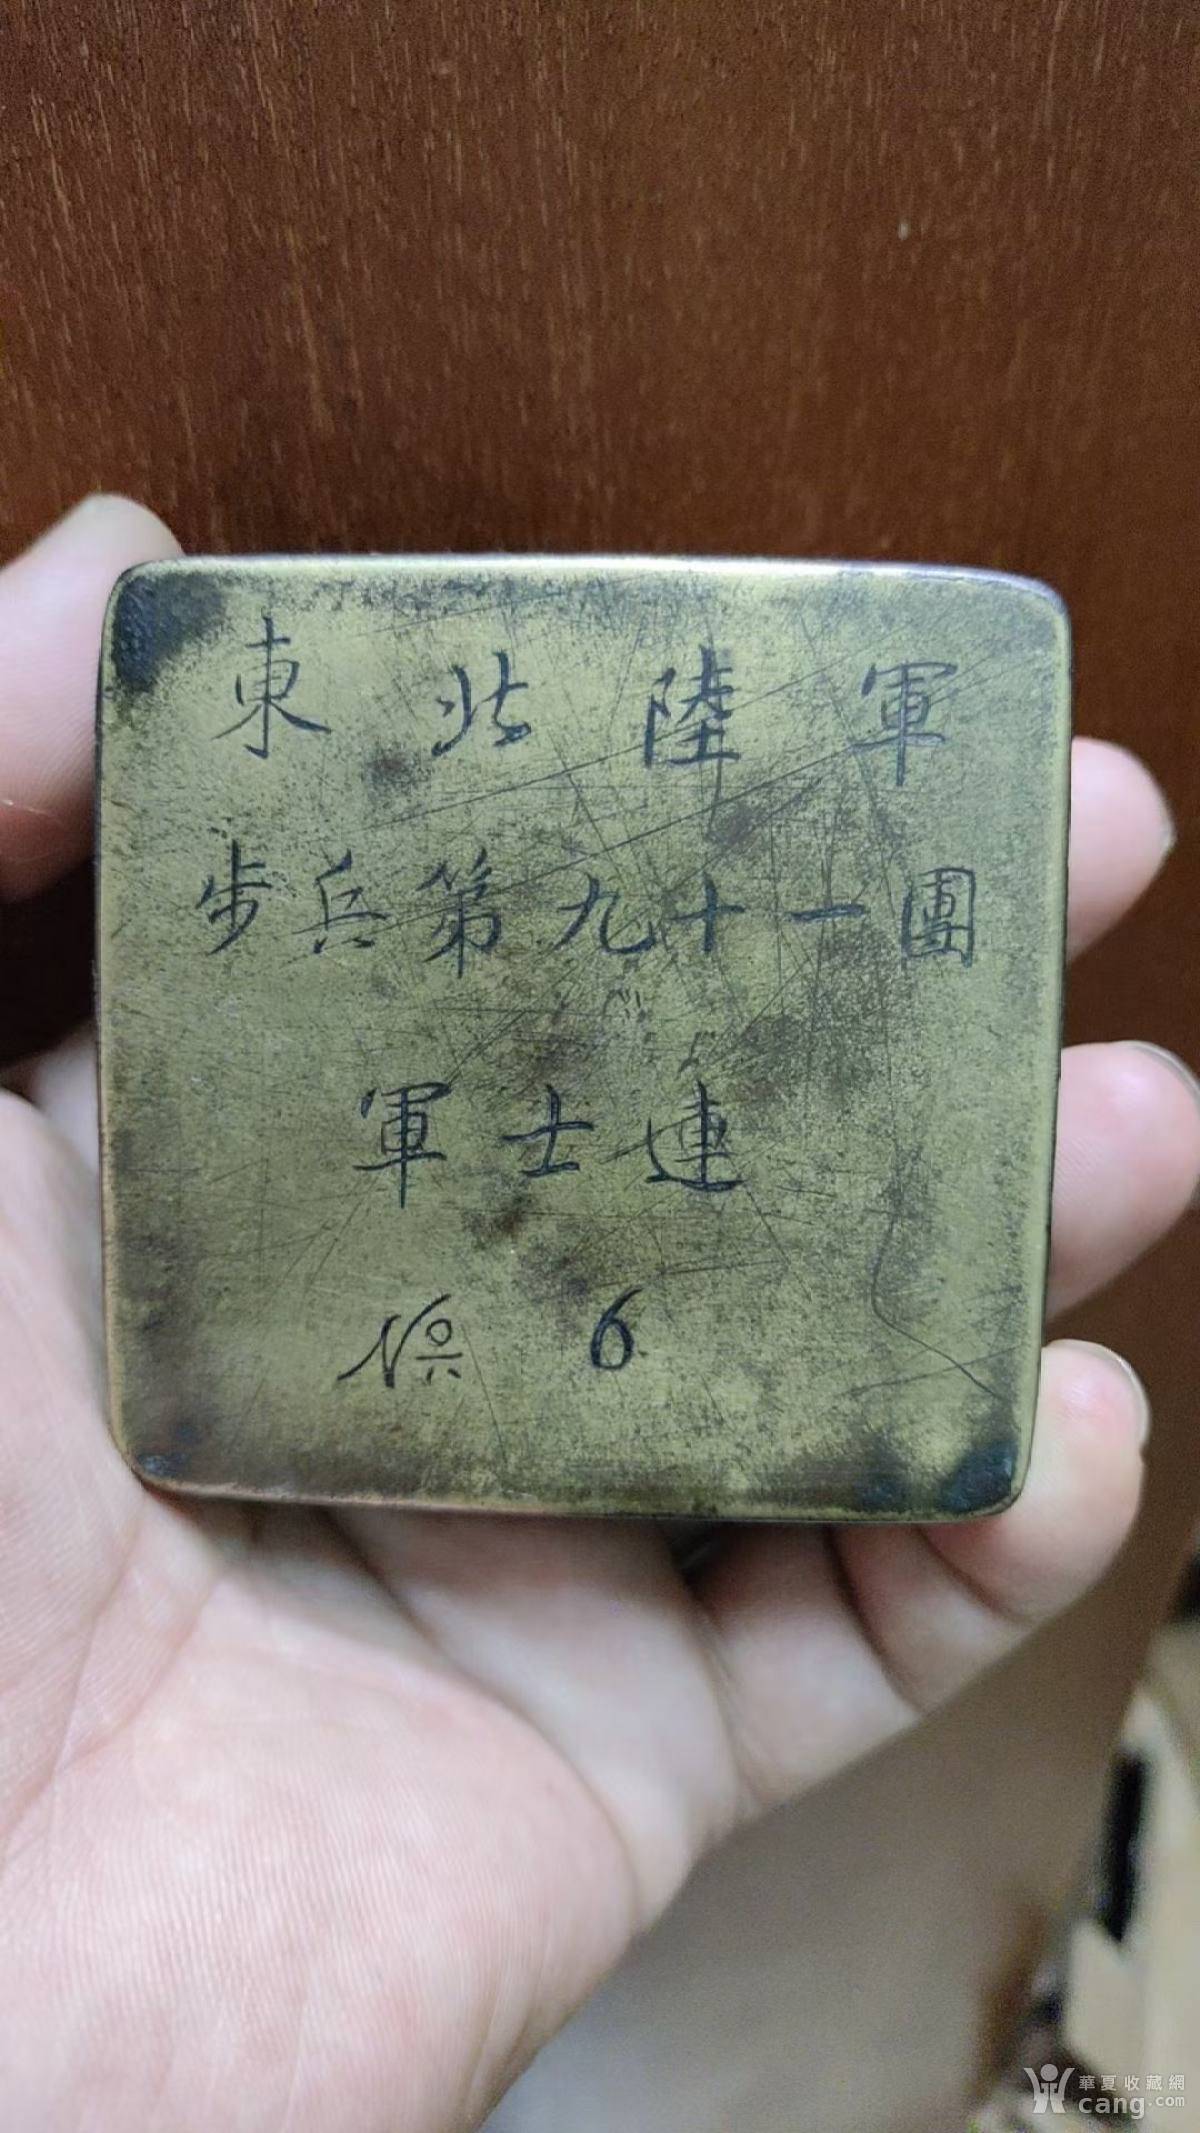 東北陸軍
步兵第九十一團
軍士連
6
華夏收藏網
cang.com